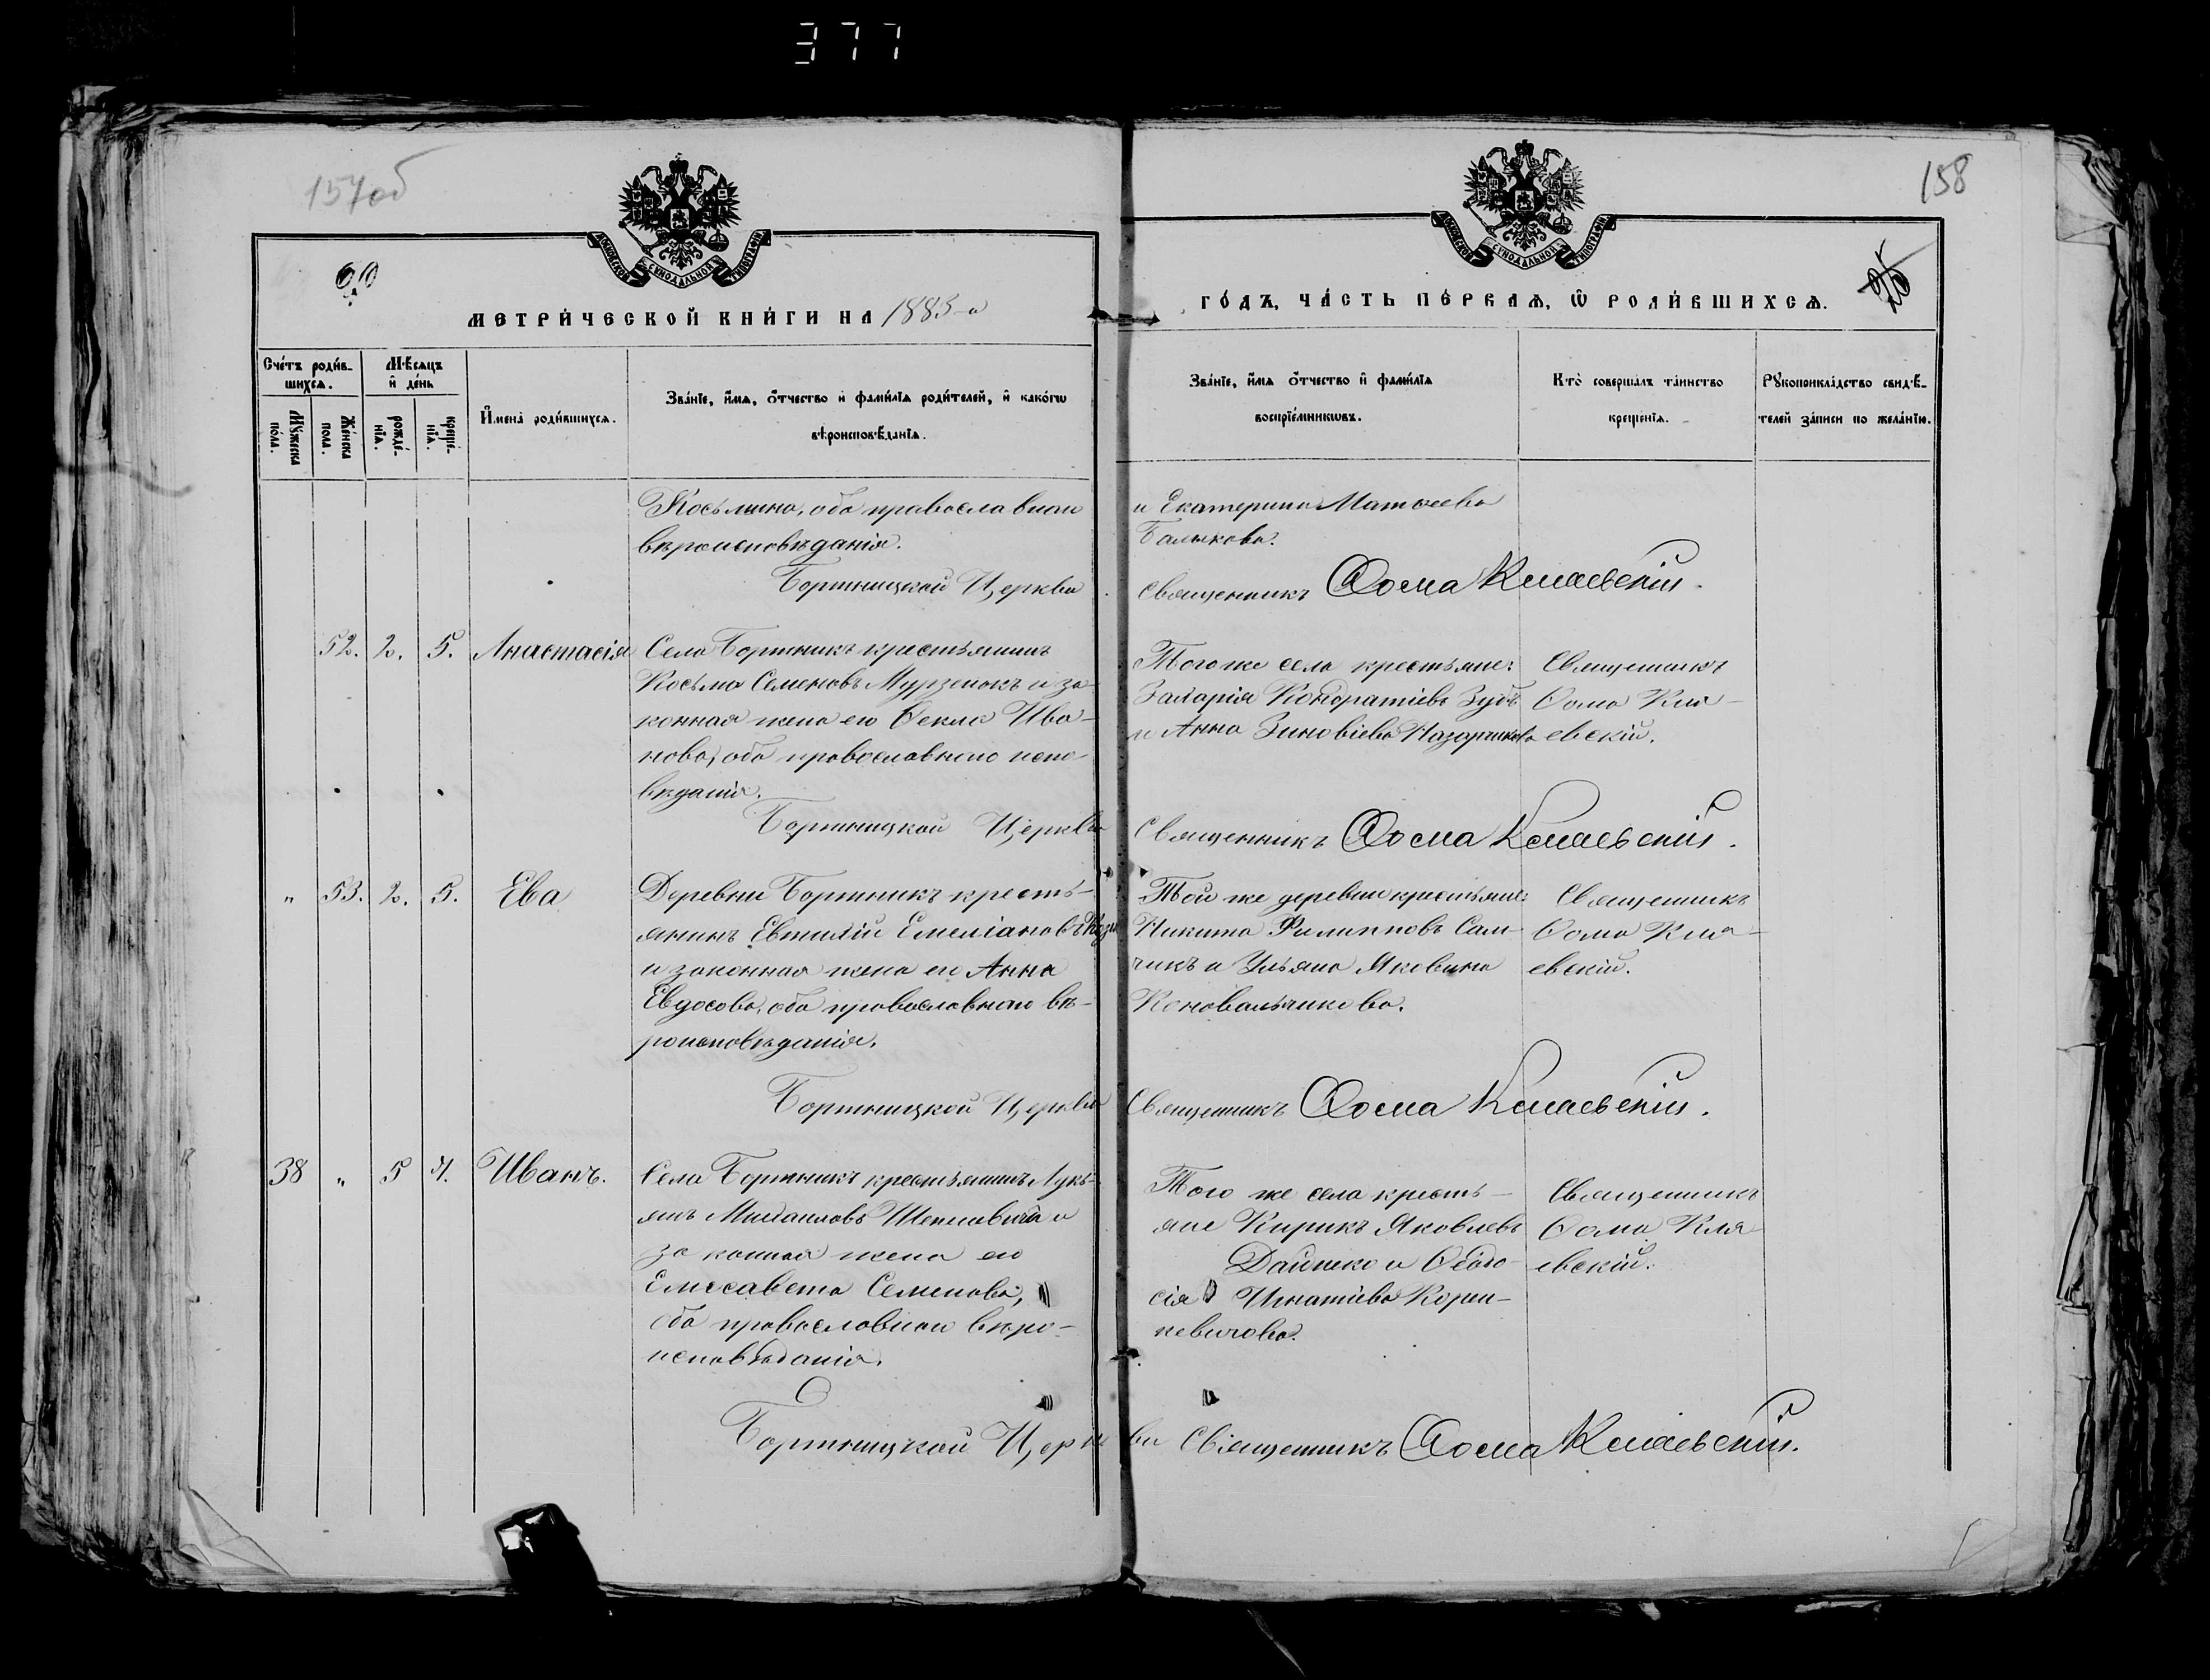 377
157об
158
МОСКОВСКОЙ СѴНОДАЛЬНОЙ ТИПОГРАФІИ
МОСКОВСКОЙ СѴНОДАЛЬНОЙ ТИПОГРАФІИ
МЕТРИ́ЧЕСКОЙ КНИ́ГИ НА 1883-й
ГО́ДЪ, ЧА́СТЬ ПЕ́РВАѦ, Ѡ҆ РОДИ́ВШИХСѦ.
Сче́тъ роди́в-
шихсѧ.
Мꙋ́жеска
по́ла.
Же́нска
пола.
Мѣ́сѧцъ
и҆ де́нь
рожде́-
нїѧ.
креще́-
нїѧ.
И҆мена̀ роди́вшихсѧ.
Зва́нїе, и҆́мѧ, ѻ҆́тчество и҆ фами́лїѧ роди́телей, и҆ како́гѡ
вѣроисповѣ́данїѧ.
Зва́нїе, и҆́мѧ ѻ҆́тчество и҆ фами́лїѧ
воспрїе́мникѡвъ.
Кто̀ соверша́лъ та́инство
креще́нїѧ.
Рꙋкоприкла́дство свидѣ́-
телей за́писи по жела́нїю.
Косьмина, оба православнаго
вѣроисповѣданія.
Бортницкой Церкви
и Екатерина Матѳеева
Балыкова.
священникъ Ѳома Кляевскій.
52. 2. 5. Анастасія
Села Бортникъ крестьянинъ
Косьма Семеновъ Мурзенокъ и за-
конная жена его Ѳекла Ива-
нова, оба православнаго испо-
вѣданія.
Бортницкой Церкви
Того же села крестьяне:
Захарія Кондратіевъ Зубъ
и Анна Зиновіева Назарчикова
Священникъ
Ѳома Кля-
евскій.
Священникъ Ѳома Кляевскій.
" 53. 2. 5. Ева
Деревни Бортникъ кресть-
янинъ Евтихій Емеліановъ
и законная жена его Анна
Евдосова, оба православнаго вѣ-
роисповѣданія.
Бортницкой Церкви
Той же деревни крестьяне:
Никита Филипповъ Сам-
чикъ и Ульяна Яковина
Коновальчикова.
Священникъ
Ѳома Кля-
евскій.
Священникъ Ѳома Кляевскій.
38 " 5 Иванъ.
Села Бортникъ крестьянинъ Лукь-
янъ Михаиловъ и
законная жена его
Елисавета Семенова,
оба православнаго вѣро-
исповѣданія.
Бортницкой Церкви
Того же села кресть-
яне Кирикъ Яковлевъ
Дайнеко и Ѳеодо-
сія Игнатіева Корж-
невичова.
Священникъ
Ѳома Кля
евскій.
Священникъ Ѳома Кляевскій.